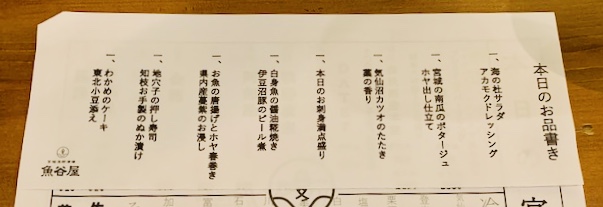 本日のお品書き
一、海の杜サラダ
アカモクドレッシング
一、宮城の南瓜のポタージュ
ホヤ出し仕立て
一、気仙沼カツオのたたき
藁の香り
一、本日のお刺身満点盛り
一、白身魚の醤油糀焼き
伊豆沼豚のビール煮
一、お魚の唐揚げとホヤ春巻き
県内産蔓紫のお浸し
一、地穴子の押し寿司
知枝お手製のぬか漬け
一、わかめのケーキ
東北小豆添え
魚谷屋